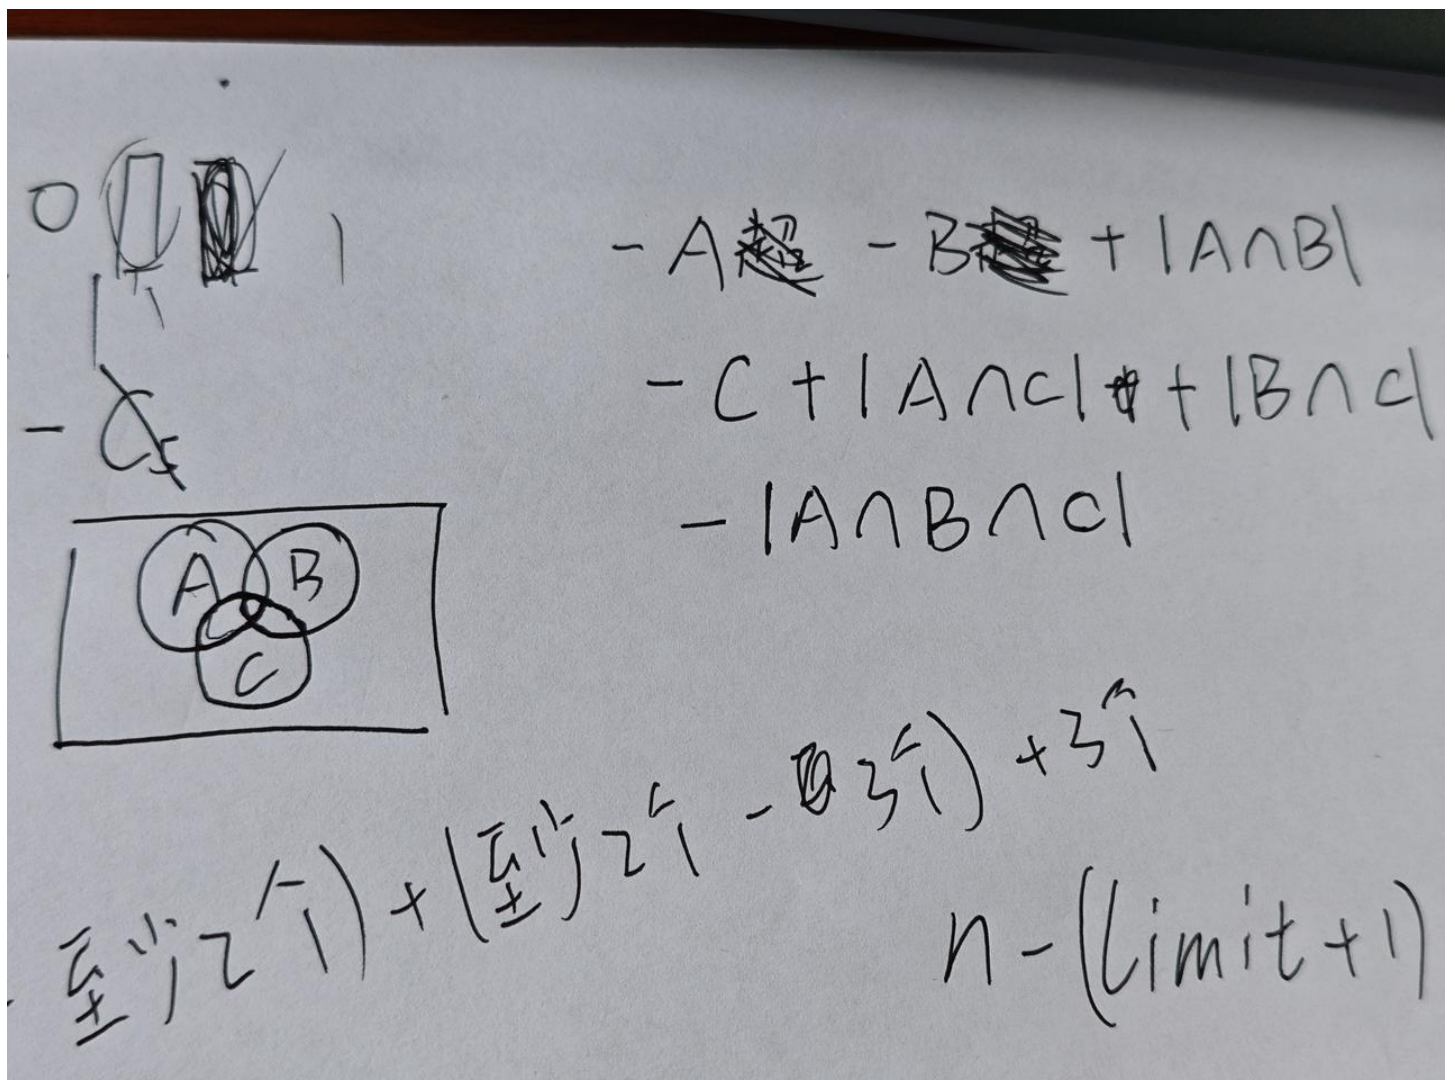 0
- A - B + |A∩B|
- C + |A∩C| + |B∩C|
- |A∩B∩C|
A B
C
至少2个) + (至少2个 - 3个) + 3个
n - (limit + 1)